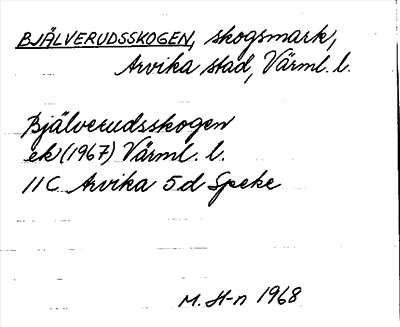 BJÄLVERUDSSKOGEN, skogsmark,
Arvika stad, Värml. l.
Bjälverudsskogen
ek (1967) Värml. l.
11 C Arvika 5 d Speke
M. H-n 1968